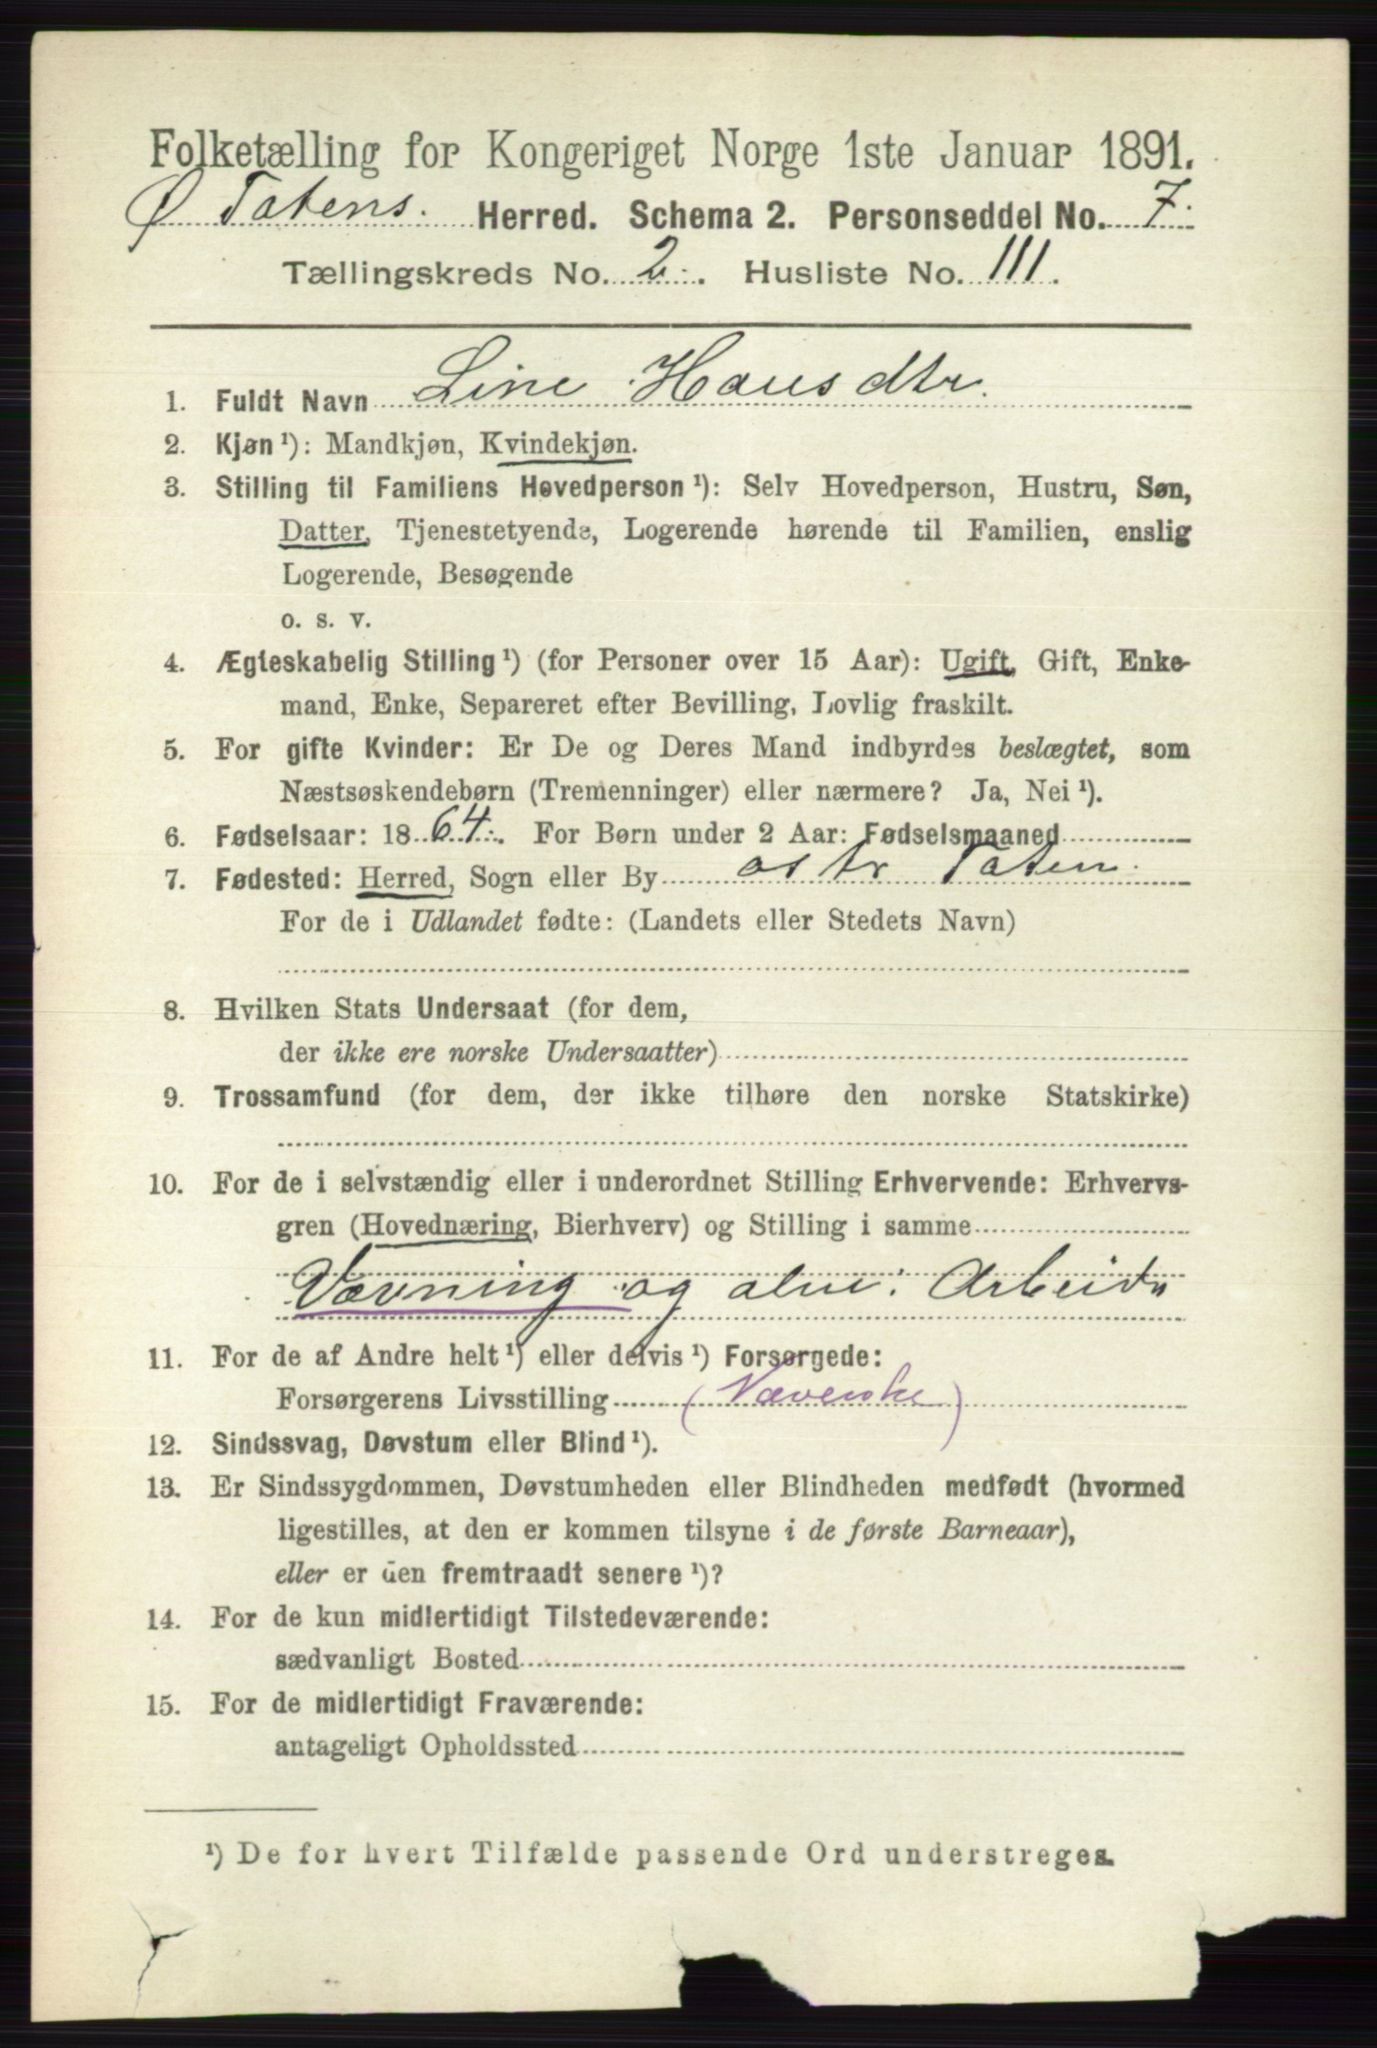 Folketælling for Kongeriget Norge 1ste Januar 1891.
Ø Totens. Herred. Schema 2. Personseddel No. 7.
Tællingskreds No. 2. Husliste No. 111.
1. Fuldt Navn Line Hansdtr.
2. Kjøn ¹): Mandkjøn, Kvindekjøn.
3. Stilling til Familiens Hovedperson ¹): Selv Hovedperson, Hustru, Søn,
Datter, Tjenestetyende, Logerende hørende til Familien, enslig
Logerende, Besøgende
o. s. v.
4. Ægteskabelig Stilling ¹) (for Personer over 15 Aar): Ugift, Gift, Enke-
mand, Enke, Separeret efter Bevilling, Lovlig fraskilt.
5. For gifte Kvinder: Er De og Deres Mand indbyrdes beslægtet, som
Næstsøskendebørn (Tremenninger) eller nærmere? Ja, Nei ¹).
6. Fødselsaar: 1864. For Børn under 2 Aar: Fødselsmaaned
7. Fødested: Herred, Sogn eller By Østr Toten.
For de i Udlandet fødte: (Landets eller Stedets Navn)
8. Hvilken Stats Undersaat (for dem,
der ikke ere norske Undersaatter)
9. Trossamfund (for dem, der ikke tilhøre den norske Statskirke)
10. For de i selvstændig eller i underordnet Stilling Erhvervende: Erhvervs-
gren (Hovednæring, Bierhverv) og Stilling i samme
Vævning og alm. Arbeide
11. For de af Andre helt ¹) eller delvis ¹) Forsørgede:
Forsørgerens Livsstilling (Væverske)
12. Sindssvag, Døvstum eller Blind ¹).
13. Er Sindssygdommen, Døvstumheden eller Blindheden medfødt (hvormed
ligestilles, at den er kommen tilsyne i de første Barneaar),
eller er den fremtraadt senere ¹)?
14. For de kun midlertidigt Tilstedeværende:
sædvanligt Bosted
15. For de midlertidigt Fraværende:
antageligt Opholdssted
¹) De for hvert Tilfælde passende Ord understreges.